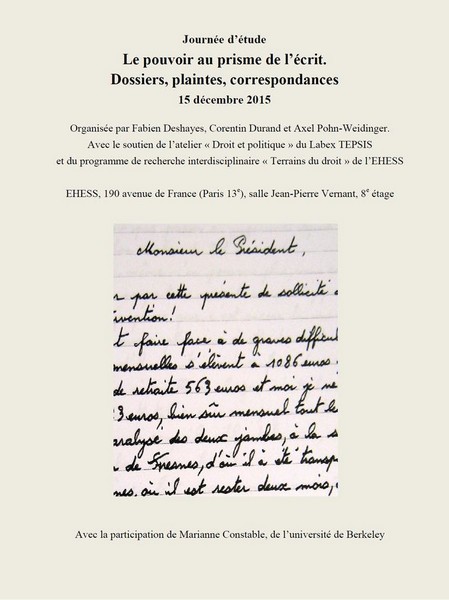 Journée d’étude
Le pouvoir au prisme de l’écrit.
Dossiers, plaintes, correspondances
15 décembre 2015
Organisée par Fabien Deshayes, Corentin Durand et Axel Pohn-Weidinger.
Avec le soutien de l’atelier « Droit et politique » du Labex TEPSIS
et du programme de recherche interdisciplinaire « Terrains du droit » de l’EHESS
EHESS, 190 avenue de France (Paris 13e), salle Jean-Pierre Vernant, 8e étage
Monsieur le Président,
r par cette présente de sollicité
ivention!
t faire face à de graves difficul
mensuelles s'élèvent à 1086 euros
de retraite 563 euros et moi je ne
3 euros, bien sûr mensuel tout le
aralysé des deux jambes, à la s
de Fresnes, d'où il à été transp
nes. où il est rester deux mois,
Avec la participation de Marianne Constable, de l’université de Berkeley